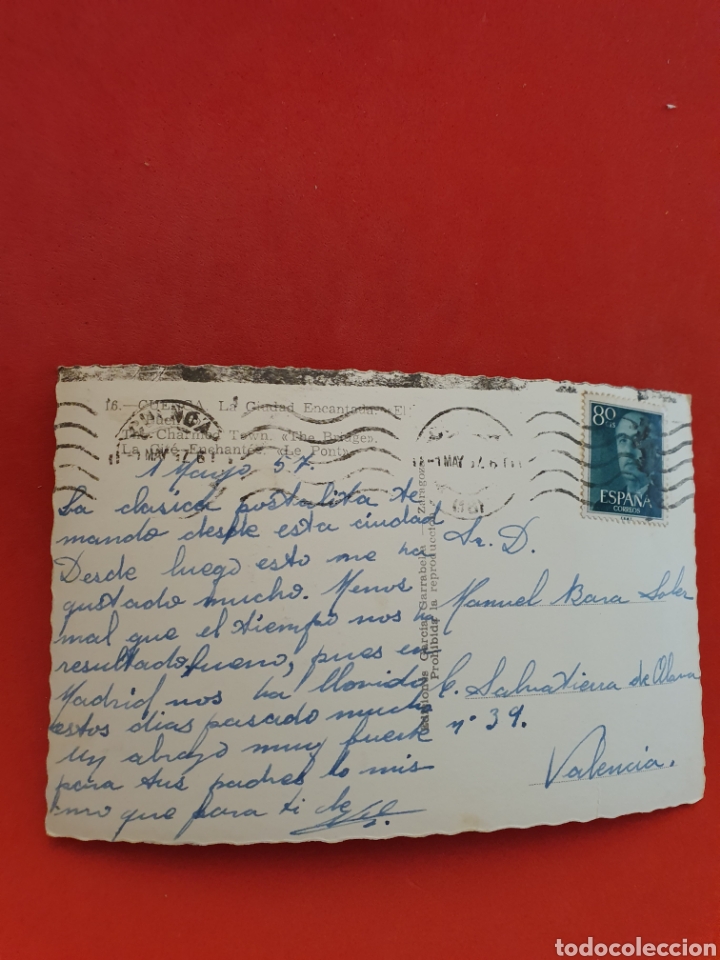 16.—CUENCA. La Ciudad Encantada. «El
Puente».
The Charmed Town. «The Bridge».
La Cité Enchantée. «Le Pont».
CUENCA
-1 MAY 57
-1 MAY 57
80
ESPAÑA
CORREOS
1 Mayo 57
La clasica postalita te
mando desde esta ciudad
Desde luego esto me ha
gustado mucho. Menos
mal que el tiempo nos ha
resultado bueno, pues en
Madrid nos ha llovido
estos dias pasado mucho
Un abrazo muy fuerte
para tus padres lo mis
mo que para ti de
Ediciones García Garrabella — Zaragoza
Prohibida la reproducción
Sr. D.
Manuel Bara Soler
C. Salvatierra de Alava
nº 39.
Valencia.
todocoleccion